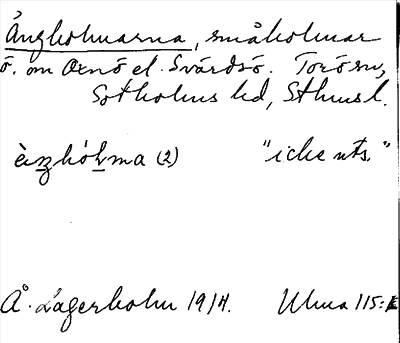 Ängholmarna, småholmar
ö. om Oxnö el. Svärdsö. Torö sn,
Sotholms hd, Sthmsl.
(2) "icke uts."
Å. Lagerholm 1914. Ulma 115: